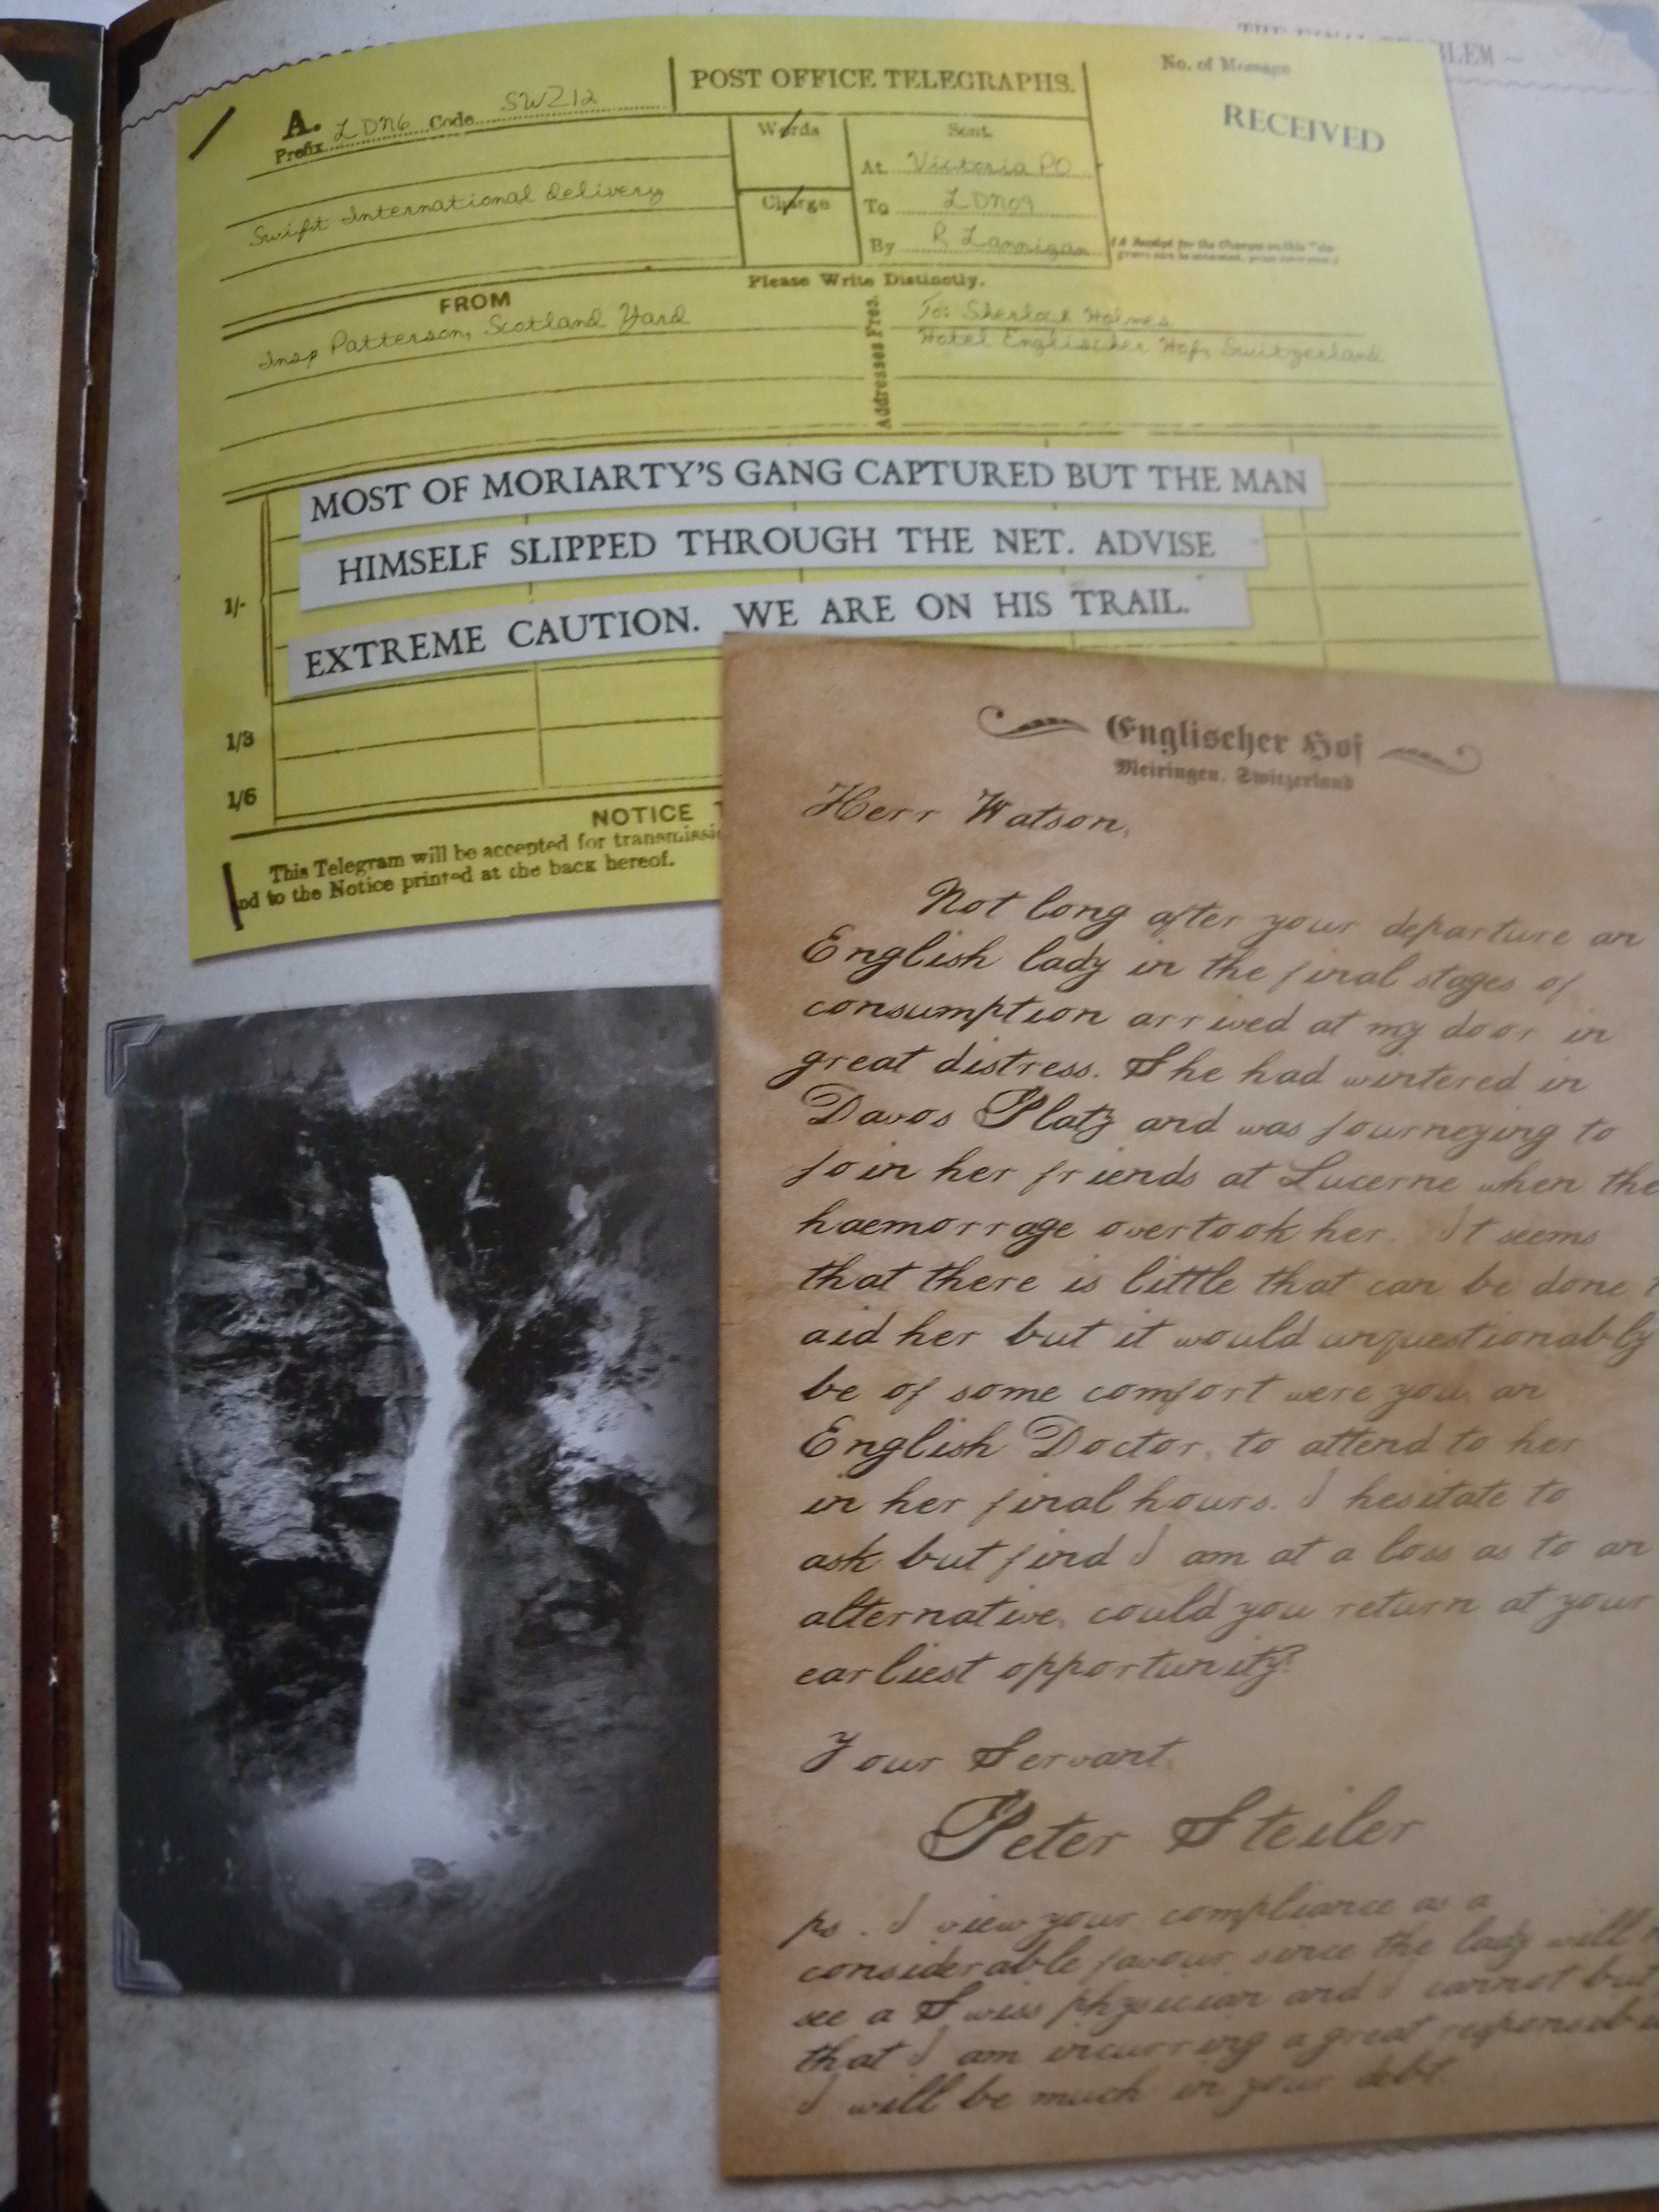 THE FINAL PROBLEM –
POST OFFICE TELEGRAPHS.
No. of Message
A.
Prefix LDN6 Code SWZ12
Words
Sent.
RECEIVED
At Victoria PO
Swift International Delivery
Charge
To LDN09
By R Lannigan
Please Write Distinctly.
FROM
Insp Patterson, Scotland Yard
Addresses Free.
To: Sherlock Holmes
Hotel Englischer Hof, Switzerland
MOST OF MORIARTY'S GANG CAPTURED BUT THE MAN
HIMSELF SLIPPED THROUGH THE NET. ADVISE
EXTREME CAUTION. WE ARE ON HIS TRAIL.
1/-
1/3
1/6
NOTICE T
This Telegram will be accepted for transmissi
nd to the Notice printed at the back hereof.
Englischer Hof
Meiringen, Switzerland
Herr Watson,
Not long after your departure an
English lady in the final stages of
consumption arrived at my door in
great distress. She had wintered in
Davos Platz and was journeying to
join her friends at Lucerne when the
haemorrage overtook her. It seems
that there is little that can be done t
aid her but it would unquestionably
be of some comfort were you, an
English Doctor, to attend to her
in her final hours. I hesitate to
ask but find I am at a loss as to an
alternative, could you return at your
earliest opportunity?
Your Servant,
Peter Steiler
ps. I view your compliance as a
considerable favour since the lady will
see a Swiss physician and I cannot but
that I am incurring a great responsib
I will be much in your debt.